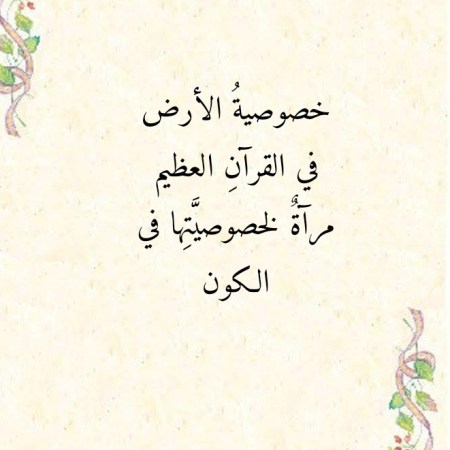 خصوصيةُ الأرض
في القرآنِ العظيم
مرآةٌ لخصوصيَّتِها في
الكون